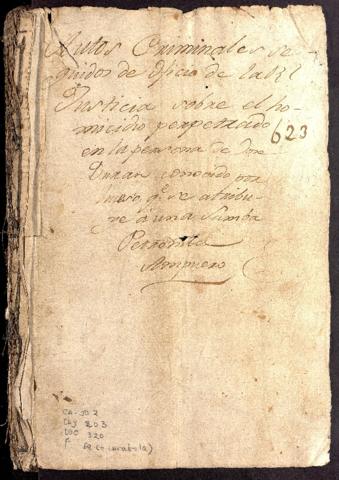 Autos Criminales se-
guidos de oficio de la Rl
Justicia sobre el ho-
micidio perpetrado
623
en la persona de Don
Duran conocido por
qe se atribu-
ye a una Samba
Petronila
Ampuero
CA-JO 2
Leg 203
DOC 320
F
62 (+ carátula)